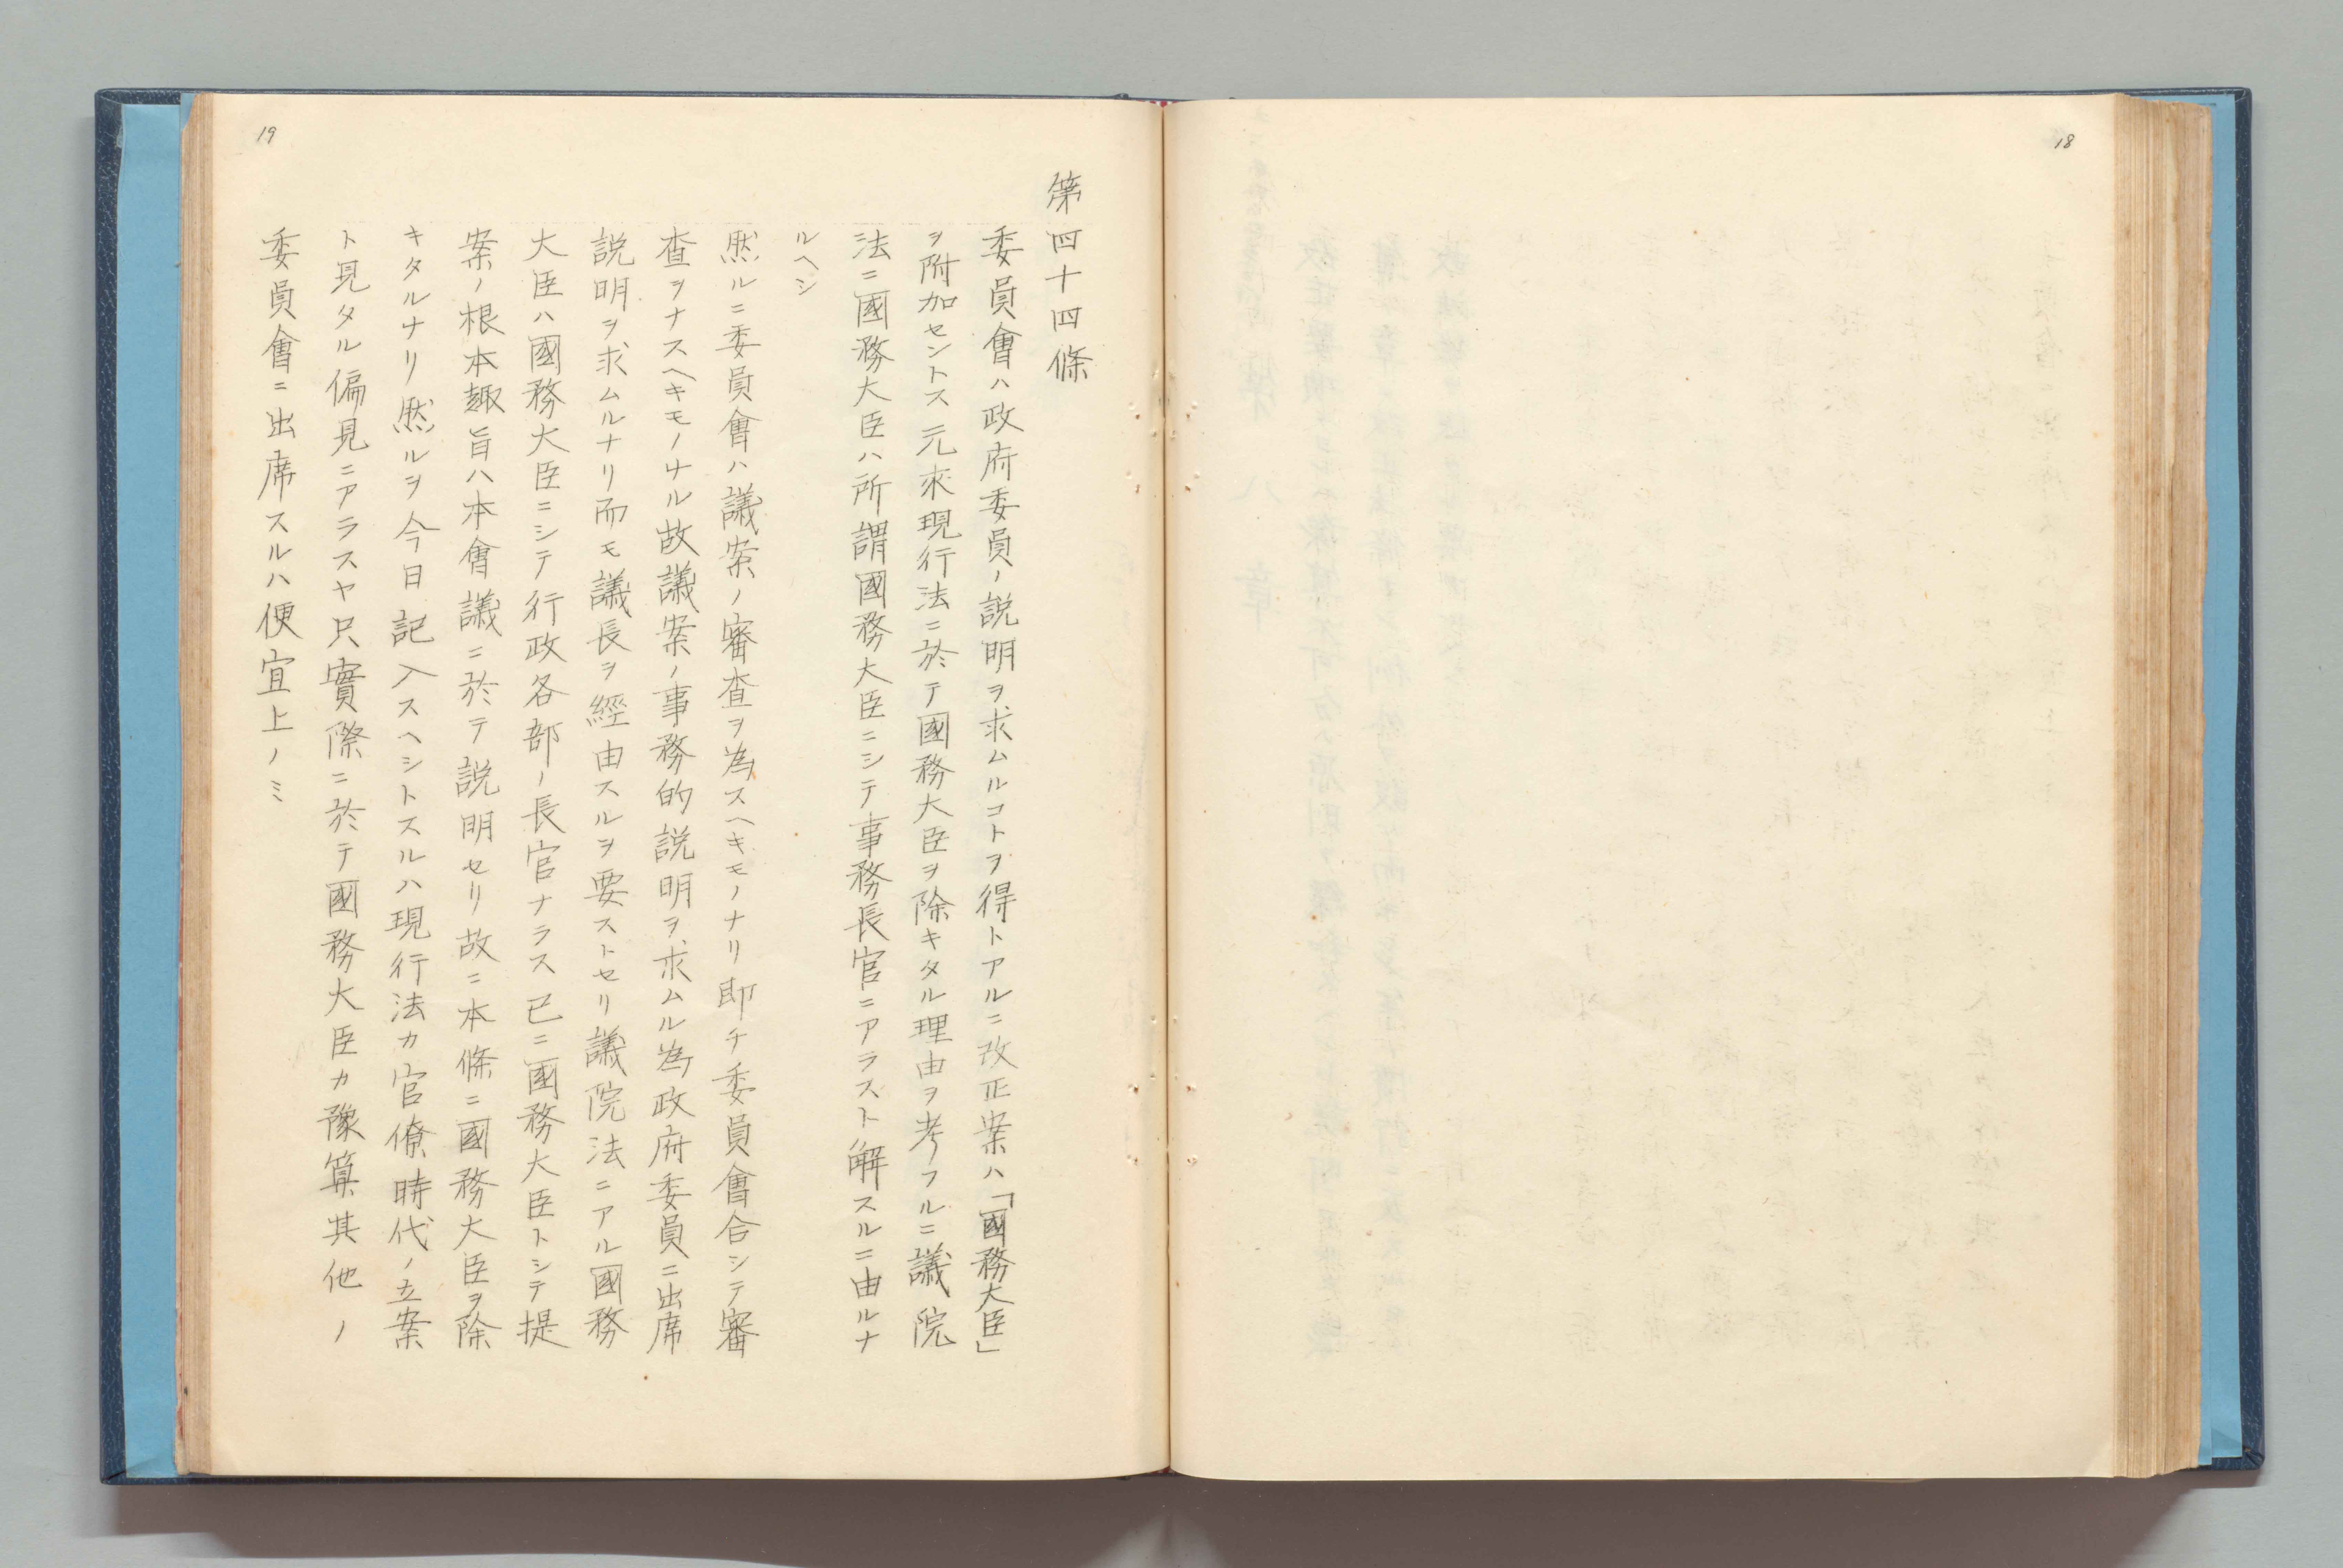 18
19
第四十四條
委員會ハ政府委員ノ説明ヲ求ムルコトヲ得トアルニ改正案ハ「國務大臣」
ヲ附加セントス元來現行法ニ於テ國務大臣ヲ除キタル理由ヲ考フルニ議院
法ニ國務大臣ハ所謂國務大臣ニシテ事務長官ニアラスト解スルニ由ルナ
ルヘシ
然ルニ委員會ハ議案ノ審査ヲ為スヘキモノナリ即チ委員會合シテ審
査ヲナスヘキモノナル故議案ノ事務的説明ヲ求ムル為政府委員ニ出席
説明ヲ求ムルナリ而モ議長ヲ經由スルヲ要ストセリ議院法ニアル國務
大臣ハ國務大臣ニシテ行政各部ノ長官ナラス已ニ國務大臣トシテ提
案ノ根本趣旨ハ本會議ニ於テ説明セリ故ニ本條ニ國務大臣ヲ除
キタルナリ然ルヲ今日記入スヘシトスルハ現行法カ官僚時代ノ立案
ト見タル偏見ニアラスヤ只實際ニ於テ國務大臣カ豫算其他ノ
委員會ニ出席スルハ便宜上ノミ